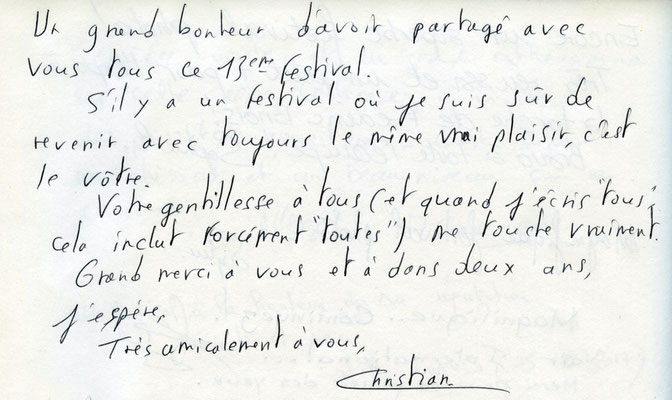 Un grand bonheur d'avoir partagé avec
vous tous ce 13ème festival.
S'il y a un festival où je suis sûr de
revenir avec toujours le même vrai plaisir, c'est
le vôtre.
Votre gentillesse à tous (et quand j'écris "tous",
cela inclut forcément "toutes") me touche vraiment.
Grand merci à vous et à dans deux ans,
j'espère,
Très amicalement à vous,
Christian